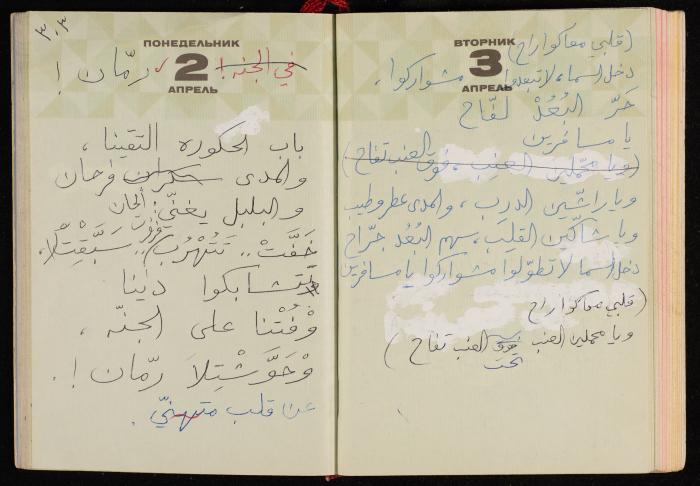 ٣٠٣
ПОНЕДЕЛЬНИК
2
АПРЕЛЬ
في الجنه! رمّان !
باب الحكوره التقينا ،
والمدى فرحان
والبلبل يغنّي ألحان
خفَّتْ .. تَتُهْرُبْ، فزِّتْ، سَبَّقْتِلَا،
تتشابكوا دينا
وْفُتْنا على الجنّه ،
وْحَوَّشْتِلَا رمّان !.
عن قلب متهنّي .
ВТОРНИК
3
АПРЕЛЬ
(قلبي معاكوا راح)
دخل السما، لا تبعدوا مشواركوا،
حَرّ البُعُدْ لفّاح
يا مسافرين
(ويا محمّلين العنب، فوق العنب تفاح)
ويا راشّين الدرب، والمدى عطر وطيب
ويا شاكّين القلب، سهم البُعُد جرّاح
دخل السما لا تطوّلوا مشواركوا يا مسافرين
(قلبي معاكوا راح
ويا محملين العنب فوق العنب تفاح)
تحت